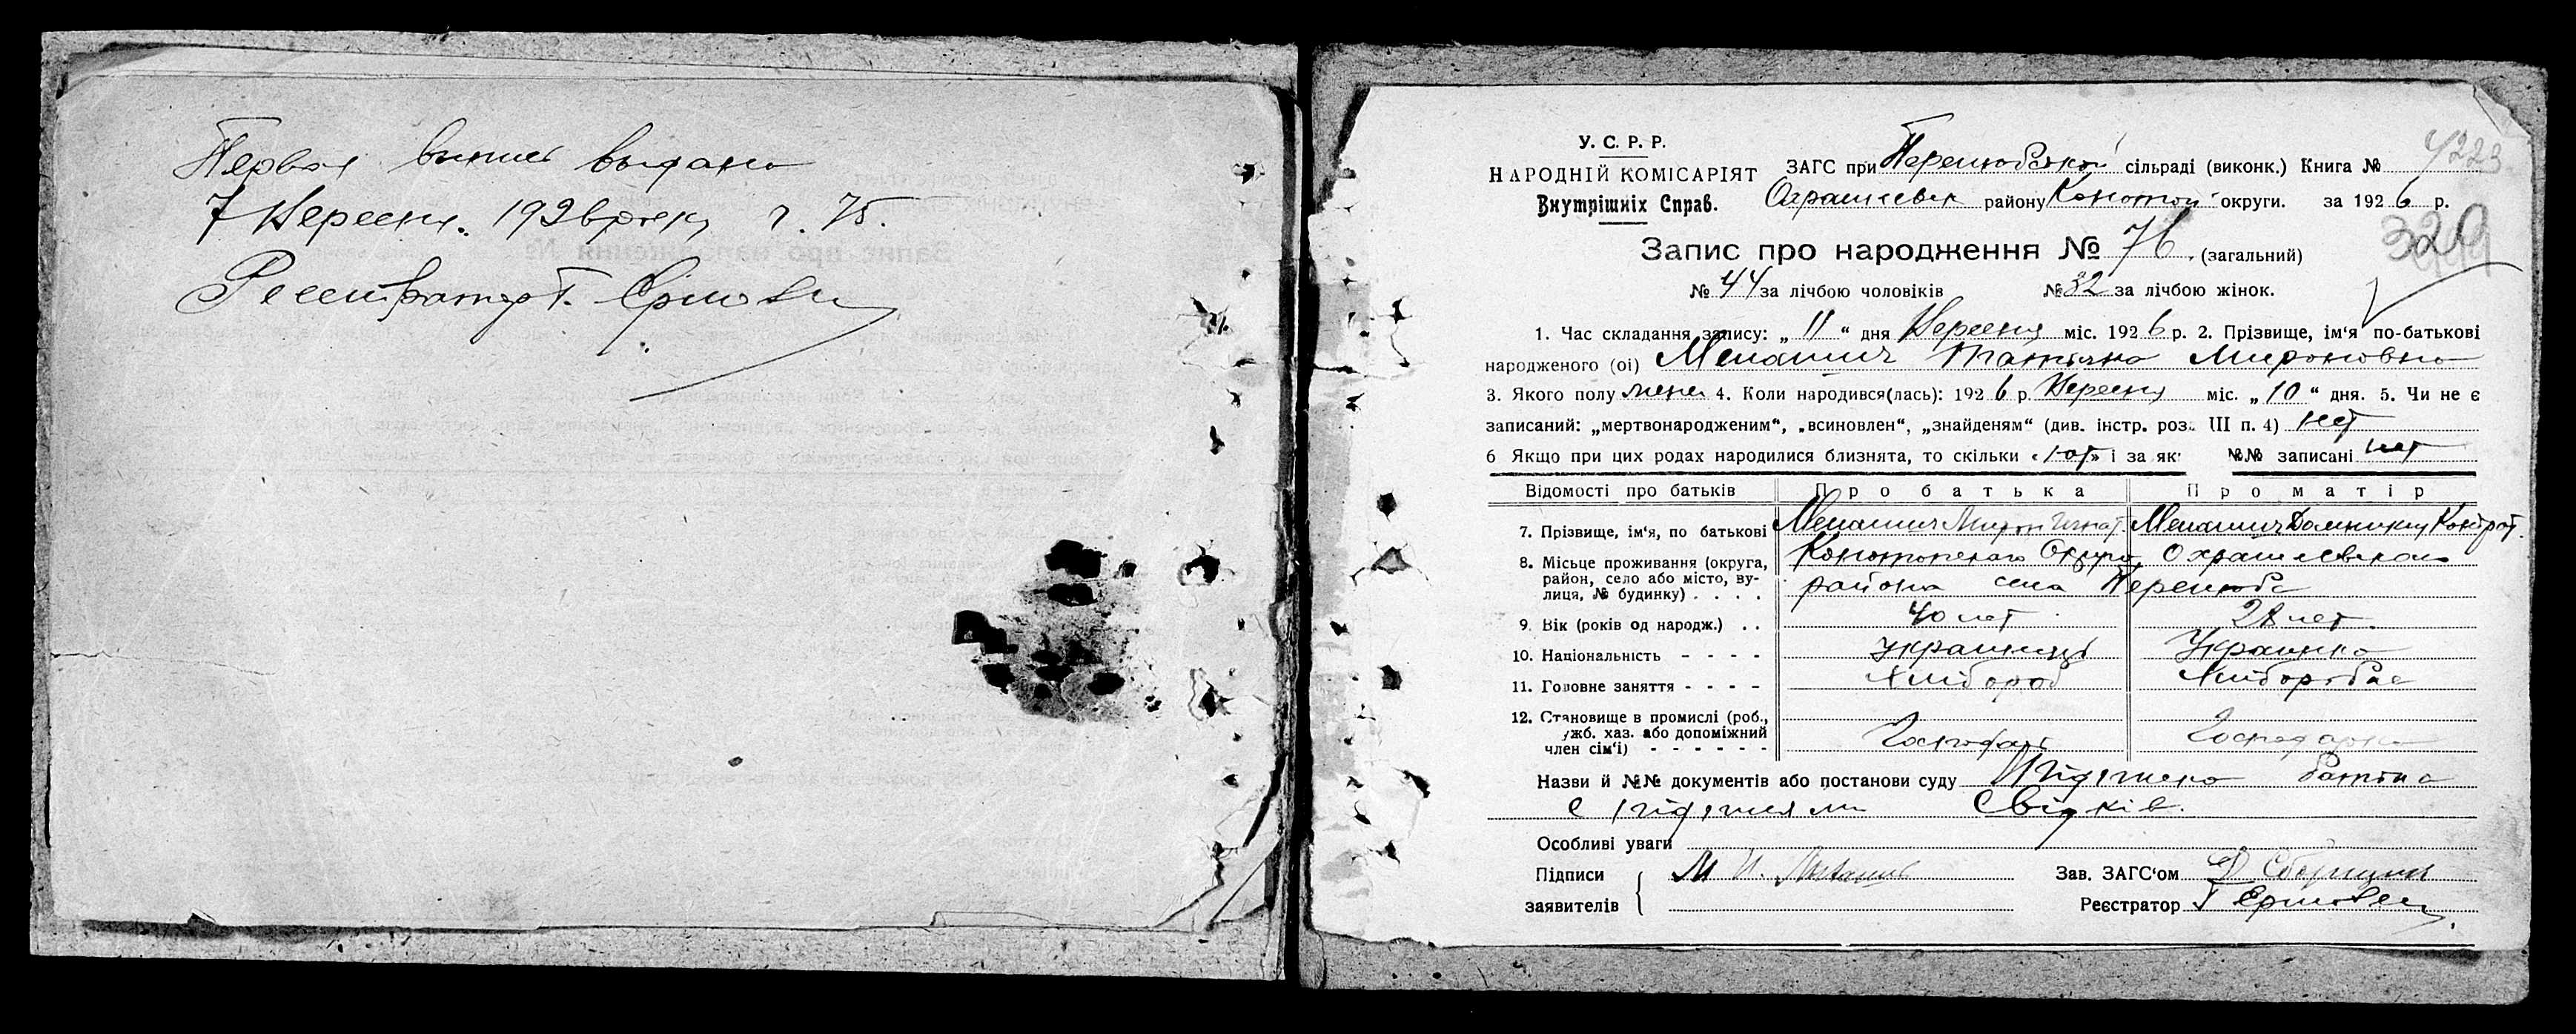 Первая випись выдана
7 Вересня. 1926 року г. 75.
Реєстратор Г.
У. С. Р. Р.
НАРОДНІЙ КОМІСАРІЯТ
Внутрішніх Справ.
ЗАГС при Перелюбской сільраді (виконк.) Книга № 4223
району Коното округи. за 1926 р.
329
Запис про народження № 76. (загальний)
№ 44 за лічбою чоловіків № 32 за лічбою жінок.
1. Час складання запису: „ 11 “ дня Вересня міс. 1926 р. 2. Прізвище, ім‘я по-батькові
народженого (ої) Менашич Татяна Мироновна
3. Якого полу жен 4. Коли народився(лась): 1926 р. Вересня міс. „ 10 “ дня. 5. Чи не є
записаний: „мертвонародженим“, „всиновлен“, „знайденям“ (див. інстр. роз. III п. 4) нет
6 Якщо при цих родах народилися близнята, то скільки « нет » і за як №№ записані нет
Відомості про батьків Про батька Про матір
7. Прізвище, ім‘я, по батькові Менашич Мирон Игнат. Менашич Домникия Кондрат.
8. Місьце проживання (округа, район, село або місто, вулиця, № будинку) . . . . Конотопского Округа, Охрамиевского
района села Перелюба
9. Вік (років од народж.) . . 40 лет 28 лет.
10. Національність - - - - Украинець Украинка
11. Головне заняття - - - - Хлібороб Хліборобка
12. Становище в промислі (роб., ужб. хаз. або допоміжний член сім‘ї) - - - - - - Господарь Господарка
Назви й №№ документів або постанови суду Підписка батька
с підписями Свідків.
Особливі уваги
Підписи М И. Менашич Зав. ЗАГС‘ом
заявителів Реєстратор Г